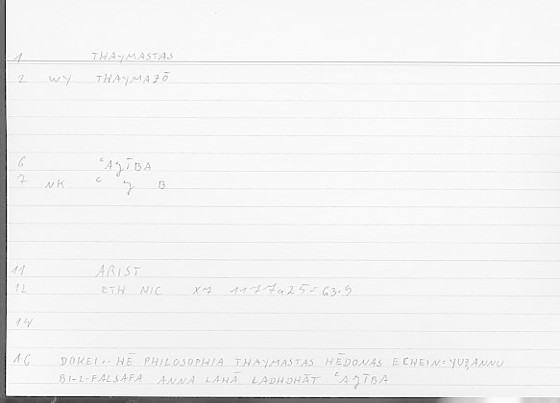 1 THAYMASTAS
2 WY THAYMAZŌ
6 ʿAǧĪBA
7 NK ʿ ǧ B
11 ARIST
12 ETH NIC X7 1177a25=63.9
14
16 DOKEI.. HĒ PHILOSOPHIA THAYMASTAS HĒDONAS ECHEIN=YUẒANNU
BI-L-FALSAFA ANNA LAHĀ LADHDHĀT ʿAǧĪBA